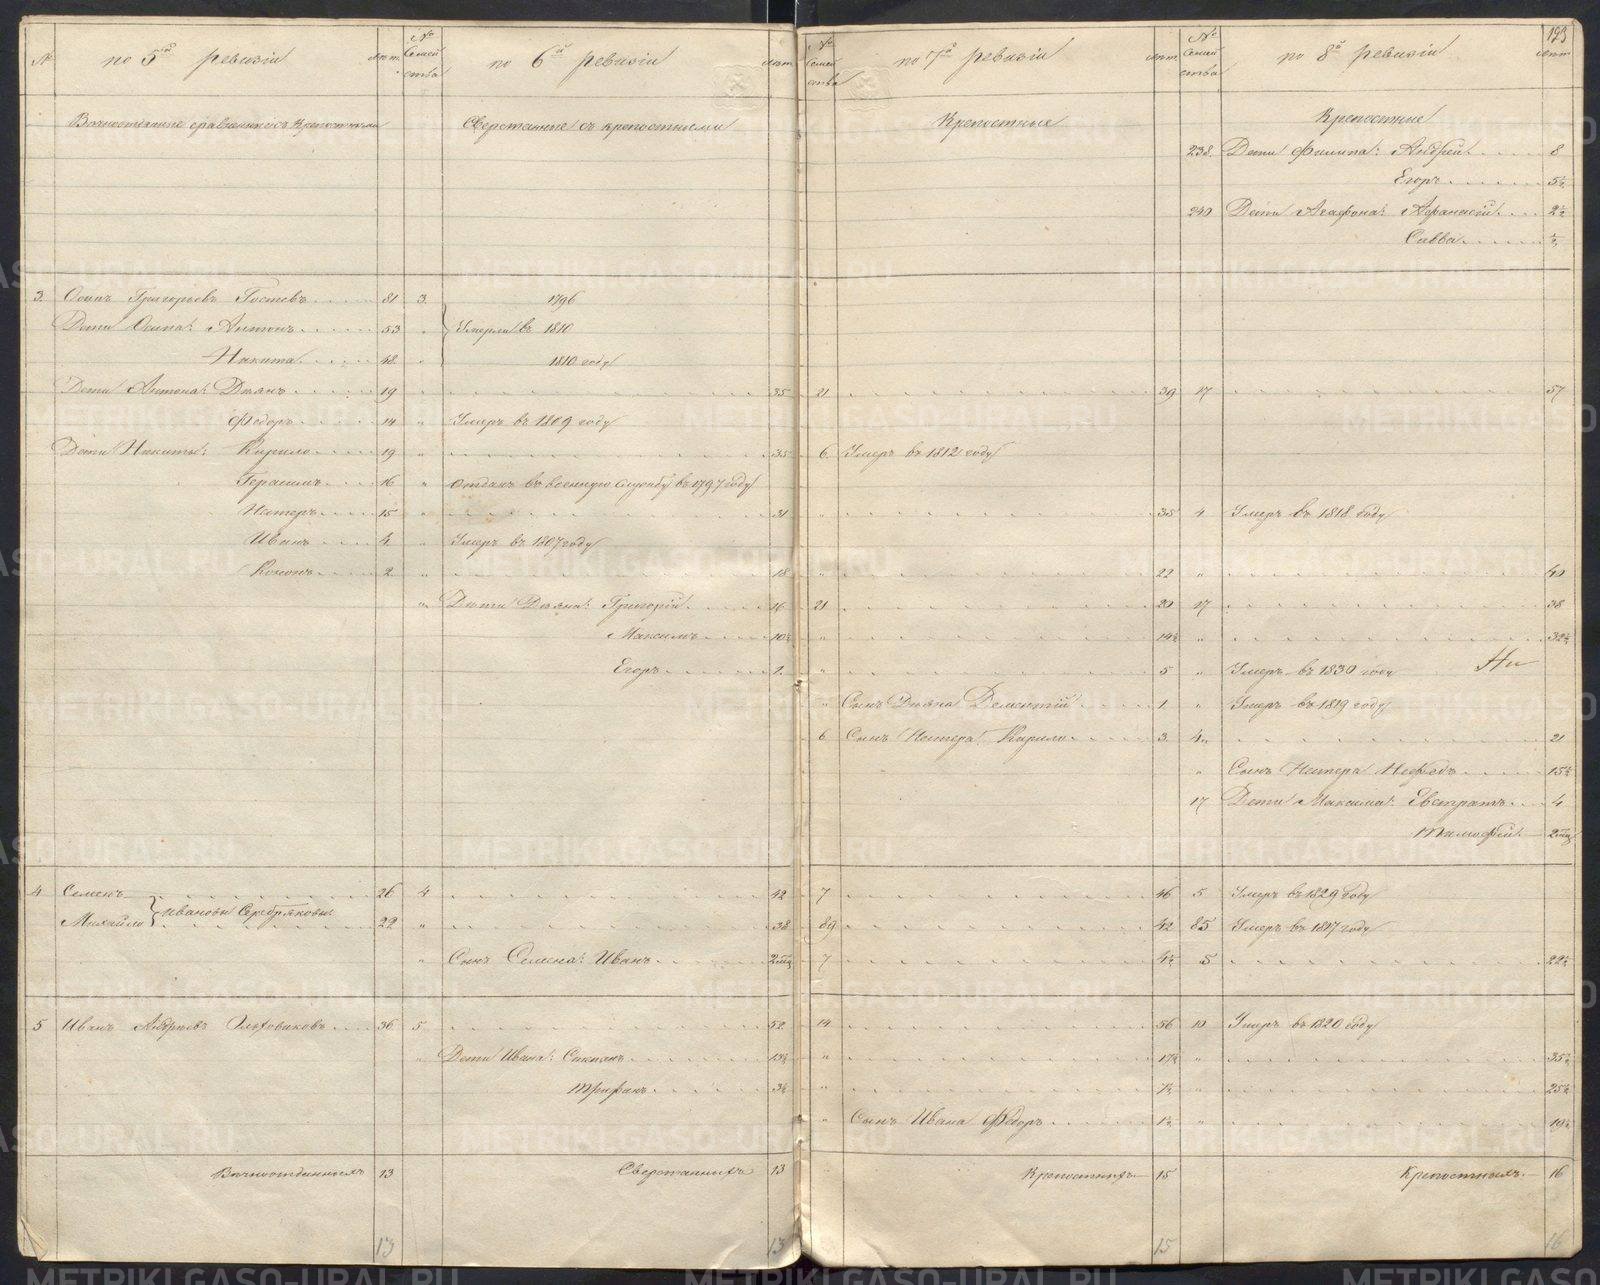 193
№ по 5й ревизіи лѣт.
№ Семейства по 6й ревизіи лѣт.
№ Семейства по 7й ревизіи лѣт.
№ Семейства по 8й ревизіи лѣт.
Сверстанные съ крепостными
Крепостные
Крепостные
238. Дети Филипа: Андрей 8
Егоръ 5½
240 Дети Агафона: Афанасій 2½
Савва ½
3. Осипъ Григорьевъ Гостевъ 81 3. 1796
Дети Осипа: Антонъ 53 " Умерли въ 1810
Никита 48 " 1810 году
Дети Антона: Диянъ 19 35 21 39 17 57
Федоръ 14 " Умеръ въ 1809 году
Дети Никиты: Кирило 19 " 35 6. Умеръ въ 1812 году
Герасимъ 16 " Отданъ въ военную службу въ 1797 году
Нестеръ 15 " 31 " 35 4 Умеръ въ 1818 году
Иванъ 4 " Умеръ въ 1807 году
Кононъ 2 " 18 " 22 " 40
" Дети Дияна: Григорій 16 21 20 17 38
Максимъ 10½ " 14½ " 32½
Егоръ 1 " 5 " Умеръ въ 1830 году
" Сынъ Дияна Дементій 1 " Умеръ въ 1819 году
6 Сынъ Нестера Кирило 3 4 21
" Сынъ Нестера Нефедъ 15½
17 Дети Максима: Евстратъ 4
Тимофей 2 мц
4 Семенъ 26 4 42 7 46 5 Умеръ въ 1829 году
Ивановы Серебряковы
Михайло 22 " 38 89 42 85 Умеръ въ 1817 году
" Сынъ Семена: Иванъ 2 мц 7 4½ 5 22½
5 Иванъ Андреевъ 36 5 52 14 56 10 Умеръ въ 1820 году
" Дети Ивана: Степанъ 13½ " 17½ " 35½
Трифанъ 3½ " 7½ " 25½
" Сынъ Ивана Федоръ 1½ " 19½
Вечноотданныхъ 13 Сверстанныхъ 13 Крепостныхъ 15 Крепостныхъ 16
13 13 15 16
METRIKI.GASO-URAL.RU